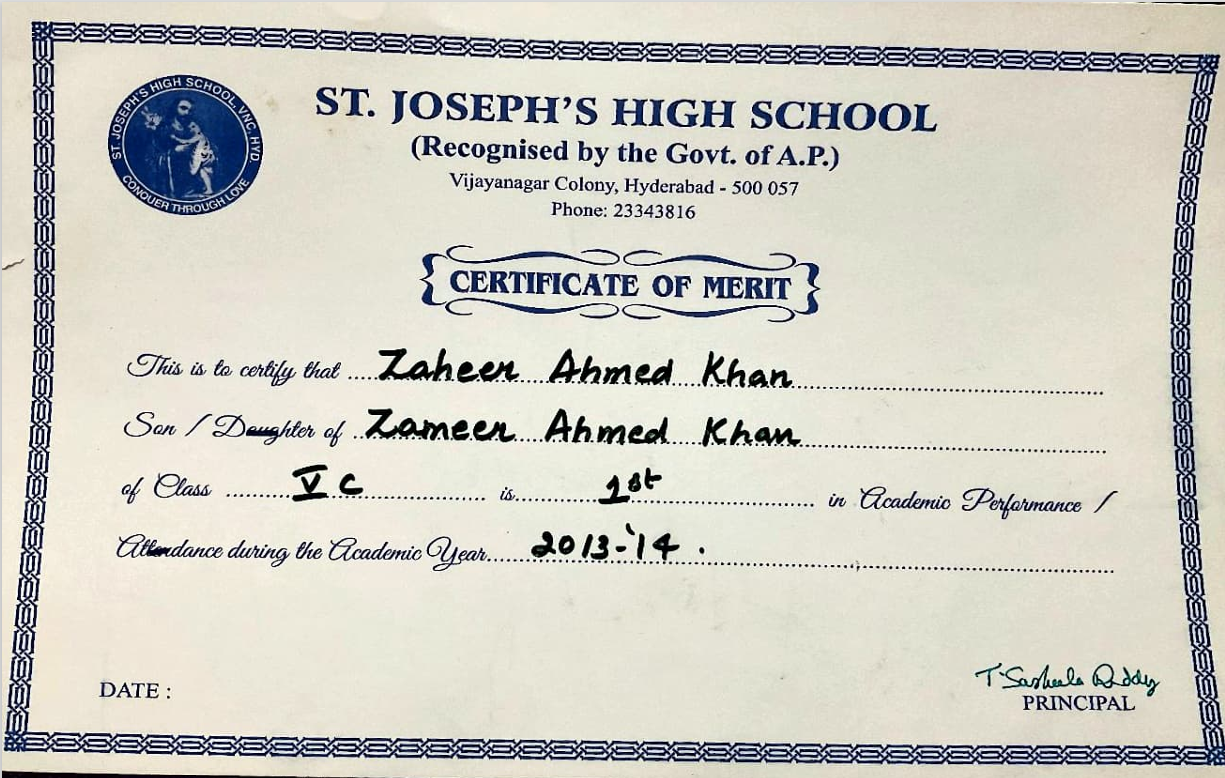 ST. JOSEPH'S HIGH SCHOOL, VNC, HYD.
CONQUER THROUGH LOVE
ST. JOSEPH'S HIGH SCHOOL
(Recognised by the Govt. of A.P.)
Vijayanagar Colony, Hyderabad - 500 057
Phone: 23343816
CERTIFICATE OF MERIT
This is to certify that Zaheer Ahmed Khan
Son / Daughter of Zameer Ahmed Khan
of Class V C is 1st in Academic Performance /
Attendance during the Academic Year 2013-'14.
T. Sasheela Reddy
DATE :
PRINCIPAL